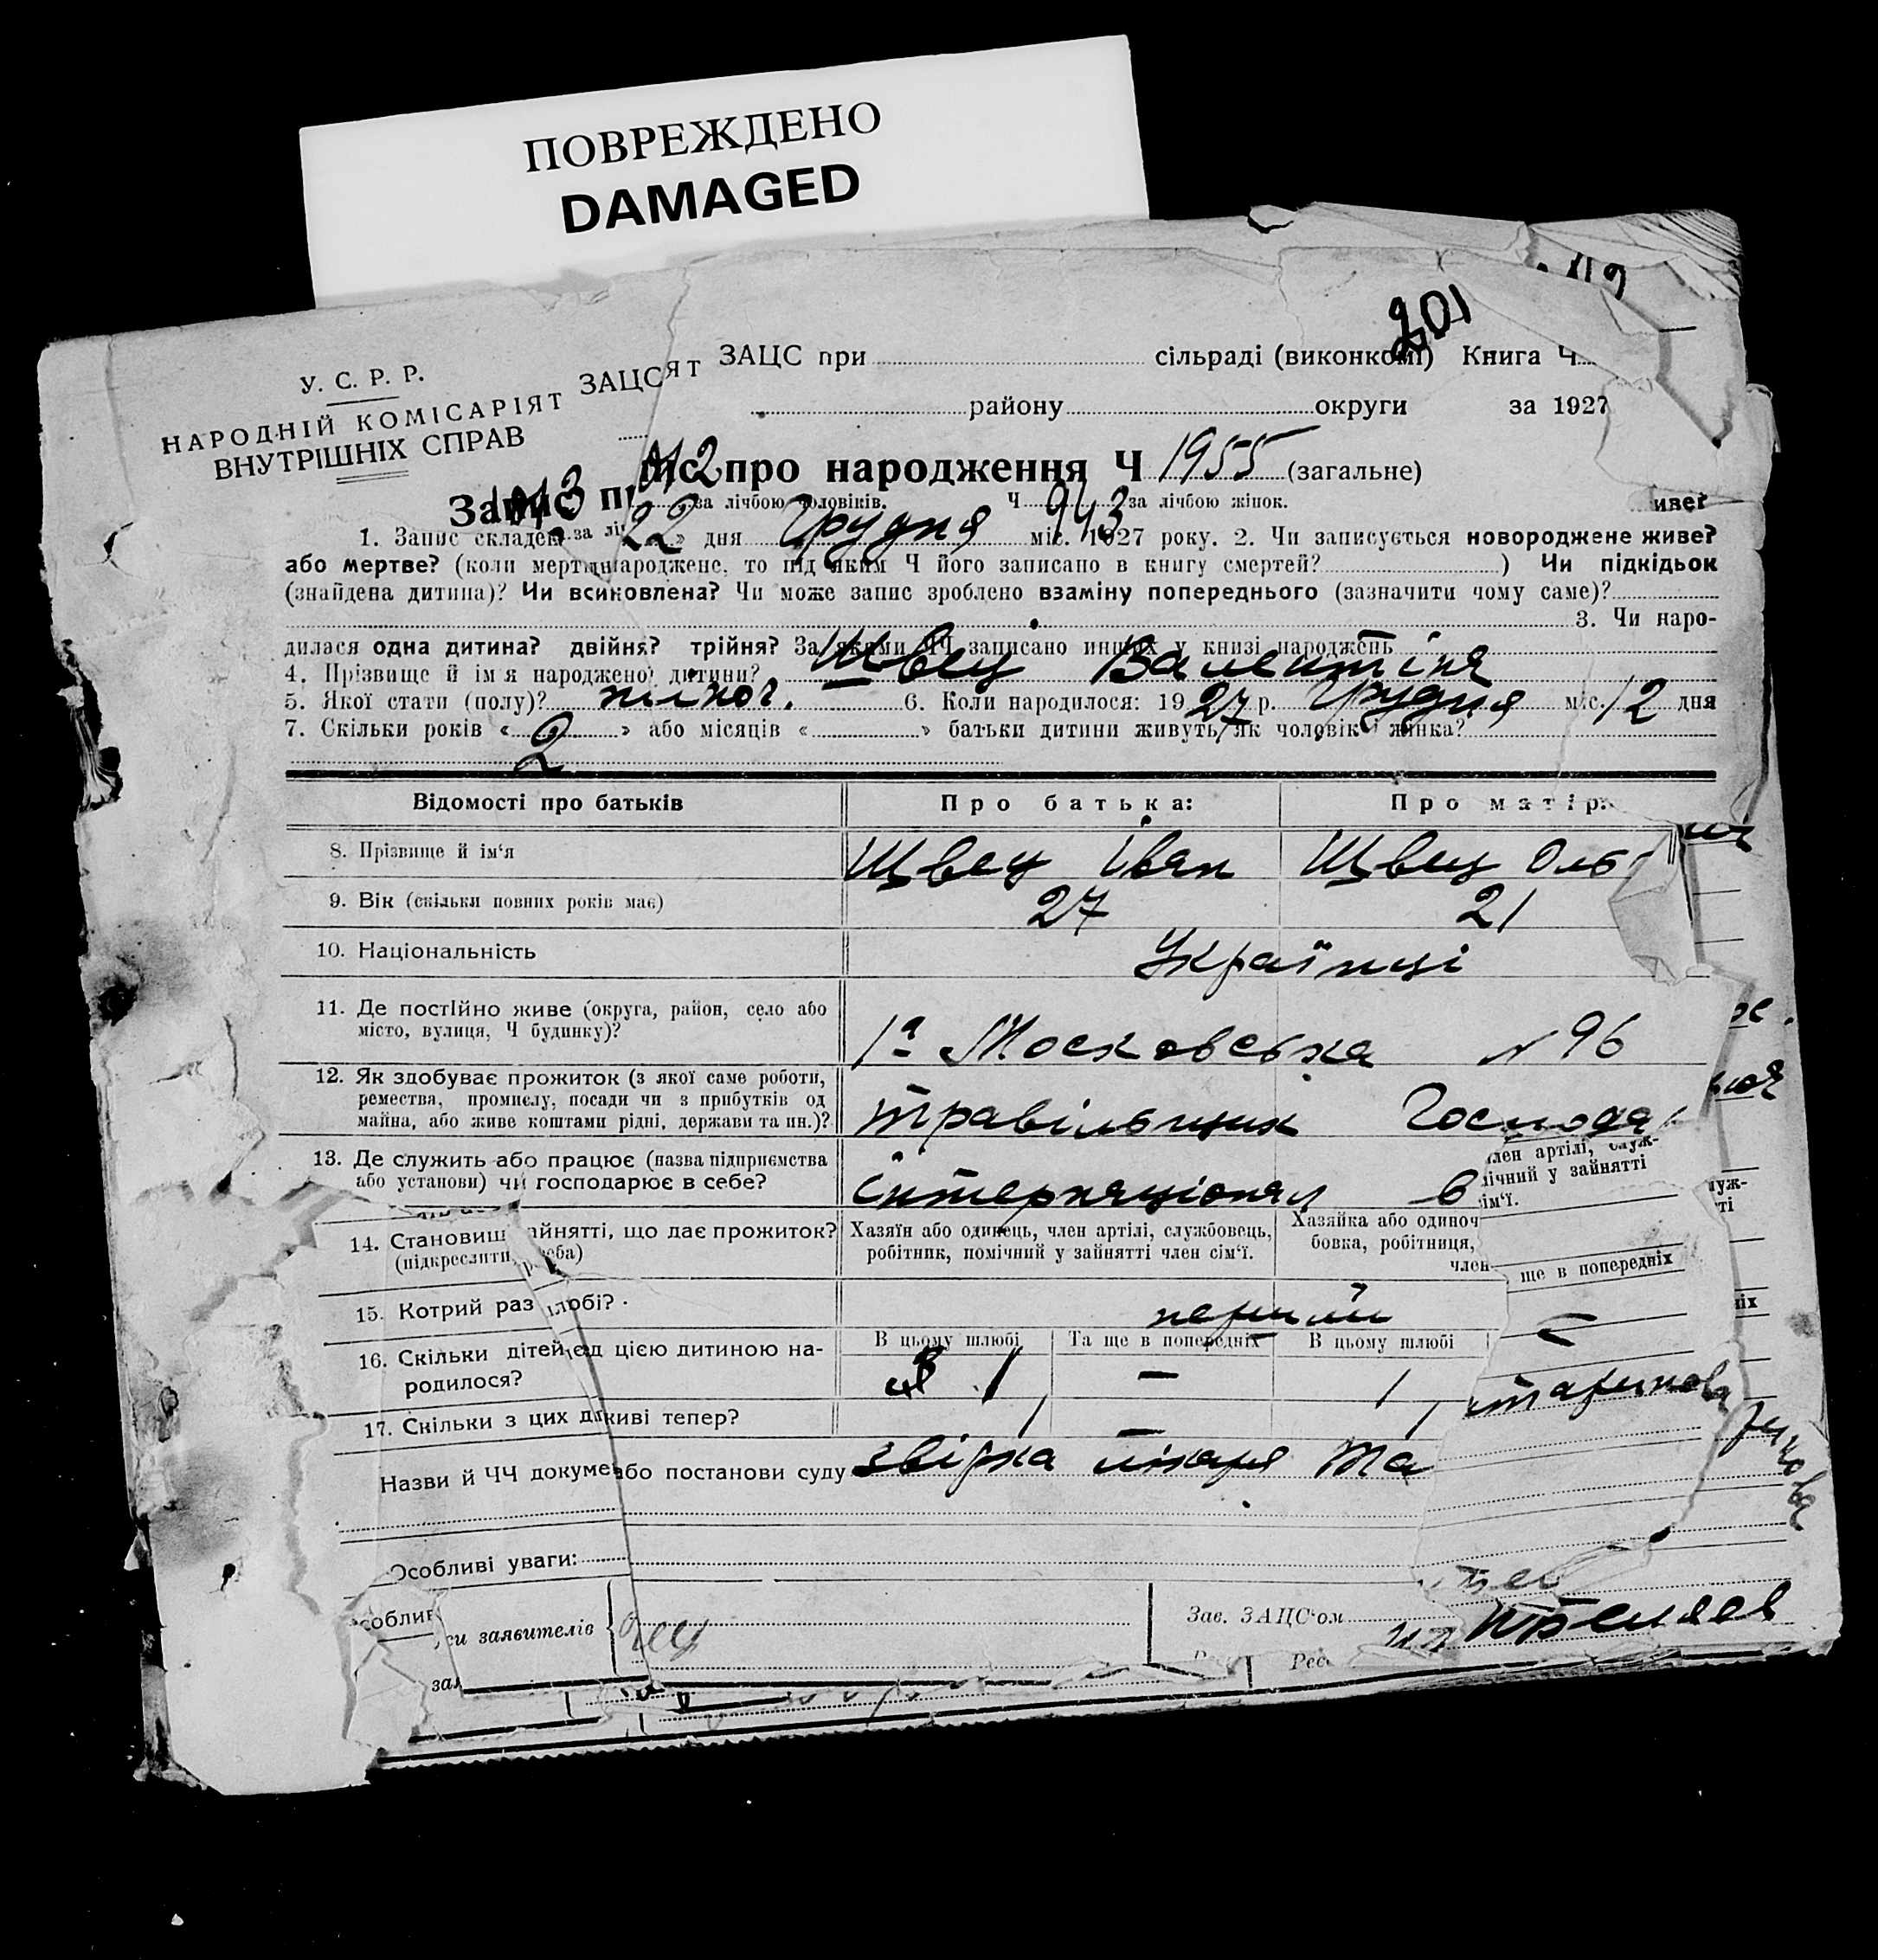 ПОВРЕЖДЕНО
DAMAGED
201
У. С. Р. Р.
НАРОДНІЙ КОМІСАРІЯТ
ВНУТРІШНІХ СПРАВ
ЗАЦС
ЯТ
ЗАЦС при сільраді (виконкомі) Книга Ч.
району округи за 1927
про народження Ч 1955 (загальне)
за лічбою чоловіків. Ч 943 за лічбою жінок.
1. Запис складен 22 » дня Грудня міс. 1927 року. 2. Чи записується новороджене живе?
або мертве? (коли мертвим народжене, то під яким Ч його записано в книгу смертей? ) Чи підкідьок
(знайдена дитина)? Чи всиновлена? Чи може запис зроблено взаміну попереднього (зазначити чому саме)?
3. Чи наро-
дилася одна дитина? двійня? трійня? За якими ЧЧ записано инших у книзі народжень
4. Прізвище й ім'я народженої дитини? Швец Валентіна
5. Якої стати (полу)? жіноч. 6. Коли народилося: 1927 р. Грудня міс. 12 дня
7. Скільки років « 2 » або місяців « » батьки дитини живуть як чоловік і жінка?
Відомості про батьків Про батька: Про матір:
8. Прізвище й ім'я Швец Іван Швец Оль
9. Вік (скільки повних років має) 27 21
10. Національність Українці
11. Де постійно живе (округа, район, село або
місто, вулиця, Ч будинку)? 1а Московська № 96
12. Як здобуває прожиток (з якої саме роботи,
ремества, промислу, посади чи з прибутків од
майна, або живе коштами рідні, держави та ин.)? травільщик Господар
13. Де служить або працює (назва підприємства
або установи) чи господарює в себе? Інтернаціонал в
член артілі, служ-
ічний у зайнятті
ім'ї.
14. Становищ айнятті, що дає прожиток? Хазяїн або одинець, член артілі, службовець, Хазяйка або одиноч
(підкреслити, реба) робітник, помічний у зайнятті член сім'ї. бовка, робітниця,
член
ще в попередніх
15. Котрий раз шлюбі? перший
16. Скільки дітей од цією дитиною на-
родилося? В цьому шлюбі Та ще в попередніх В цьому шлюбі
1 — 1 —
17. Скільки з цих живі тепер? 1 — 1
Назви й ЧЧ докумен або постанови суду звірка лікаря
Особливі уваги:
соблив
си заявителів
Зав. ЗАЦС'ом